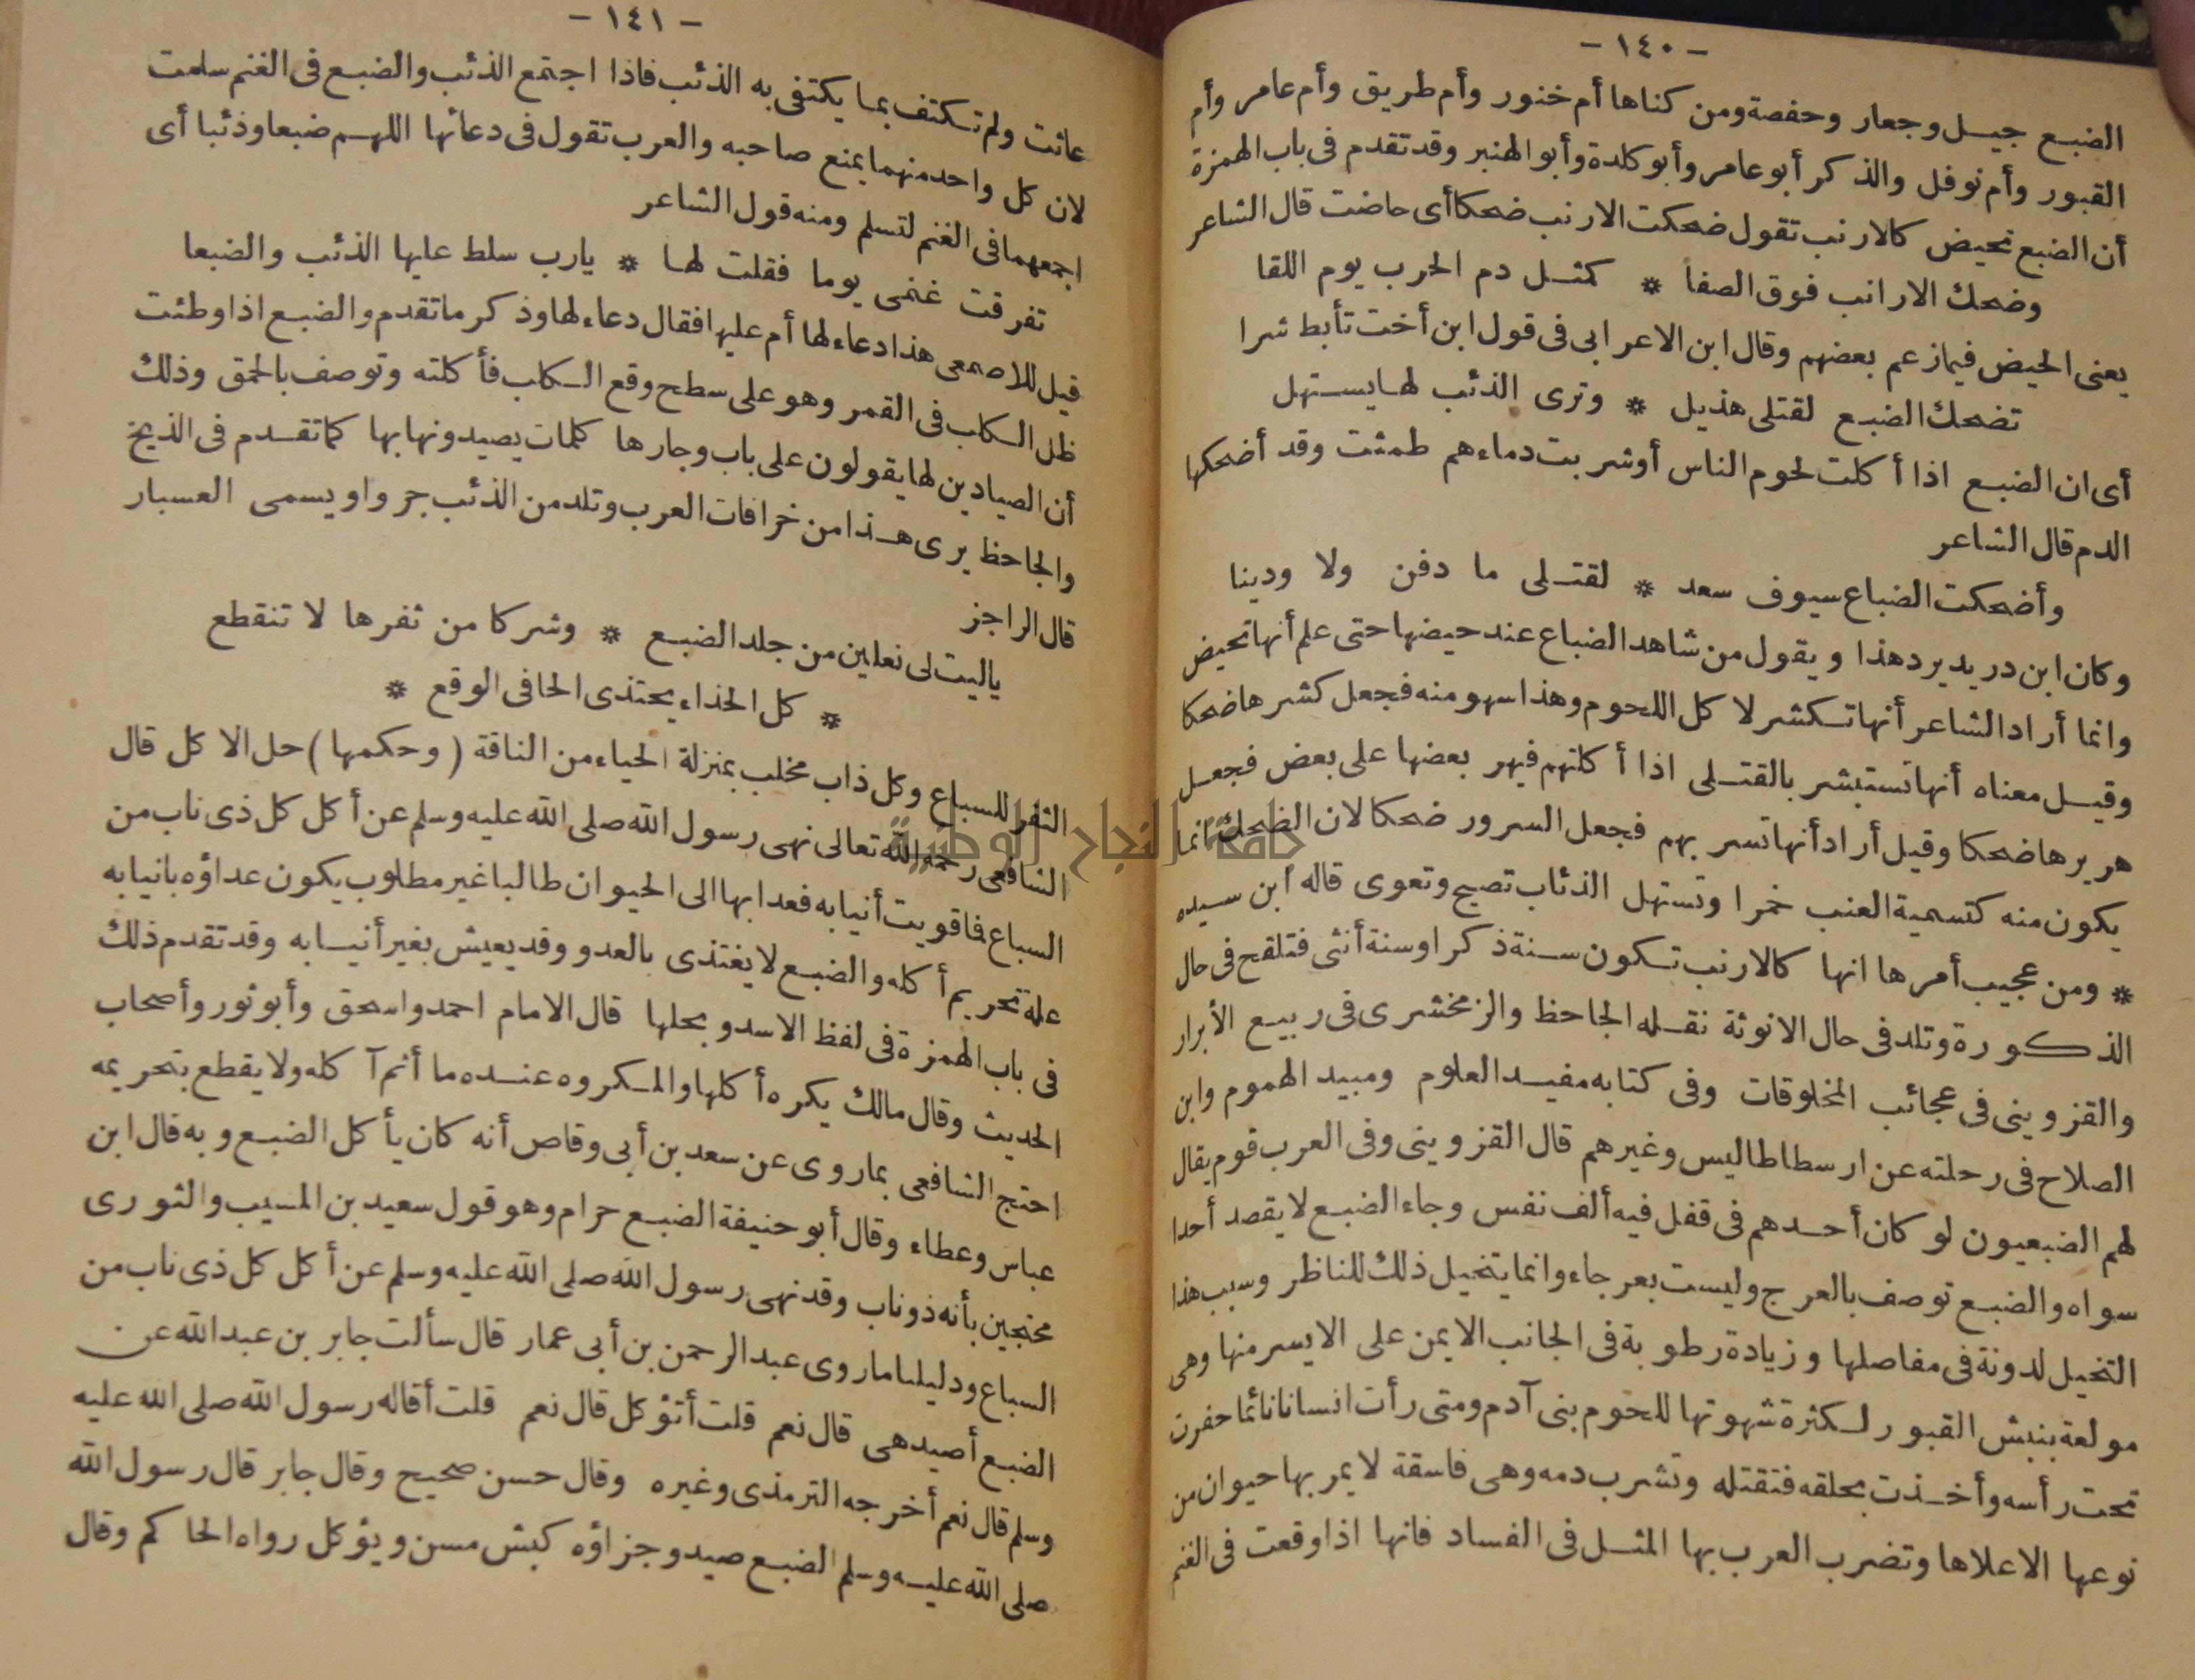 - ١٤٠ -
الضبع جيل وجعار وحفصة ومن كناها أم خنور وأم طريق وأم عامر وأم
القبور وأم نوفل والذكر أبو عامر وأبو كلدة وأبو الهنبر وقد تقدم فى باب الهمزة
أن الضبع تحيض كالارنب تقول ضحكت الارنب ضحكا أى حاضت قال الشاعر
وضحك الارانب فوق الصفا * كمثل دم الحرب يوم اللقا
يعنى الحيض فيما زعم بعضهم وقال ابن الاعرابى فى قول ابن أخت تأبط شرا
تضحك الضبع لقتلى هذيل * وترى الذئب لها يستهل
أى ان الضبع اذا أكلت لحوم الناس أو شربت دماءهم طمثت وقد أضحكها
الدم قال الشاعر
وأضحكت الضباع سيوف سعد * لقتلى ما دفن ولا ودينا
وكان ابن دريد يرد هذا ويقول من شاهد الضباع عند حيضها حتى علم أنها تحيض
وانما أراد الشاعر أنها تكشر لا كل اللحوم وهذا سهو منه فجعل كشرها ضحكا
وقيل معناه أنها تستبشر بالقتلى اذا أكلتهم فيهر بعضها على بعض فجعل
هريرها ضحكا وقيل أراد أنها تسر بهم فجعل السرور ضحكا لان الضحك انما
يكون منه كتسمية العنب خمرا وتستهل الذئاب تصيح وتعوى قاله ابن سيده
* ومن عجيب أمرها انها كالارنب تكون سنة ذكرا وسنة أنثى فتلقح فى حال
الذكورة وتلد فى حال الانوثة نقله الجاحظ والزمخشرى فى ربيع الأبرار
والقزوينى فى عجائب المخلوقات وفى كتابه مفيد العلوم ومبيد الهموم وابن
الصلاح فى رحلته عن ارسطاطاليس وغيرهم قال القزوينى وفى العرب قوم يقال
لهم الضبعيون لو كان أحدهم فى قفل فيه ألف نفس وجاء الضبع لا يقصد أحدا
سواه والضبع توصف بالعرج وليست بعرجاء وانما يتخيل ذلك للناظر وسبب هذا
التخيل لدونة فى مفاصلها وزيادة رطوبة فى الجانب الايمن على الايسر منها وهى
مولعة بنبش القبور لكثرة شهوتها للحوم بنى آدم ومتى رأت انسانا نائما حفرت
تحت رأسه وأخذت بحلقه فتقتله وتشرب دمه وهى فاسقة لا يمر بها حيوان من
نوعها الا علاها وتضرب العرب بها المثل فى الفساد فانها اذا وقعت فى الغنم
- ١٤١ -
عاثت ولم تكتف بما يكتفى به الذئب فاذا اجتمع الذئب والضبع فى الغنم سلمت
لان كل واحد منهما يمنع صاحبه والعرب تقول فى دعائها اللهم ضبعا وذئبا أى
اجمعهما فى الغنم لتسلم ومنه قول الشاعر
تفرقت غنمى يوما فقلت لها * يارب سلط عليها الذئب والضبعا
قيل للاصمعى هذا دعاء لها أم عليها فقال دعاء لها وذكر ما تقدم والضبع اذا وطئت
ظل الكلب فى القمر وهو على سطح وقع الكلب فأكلته وتوصف بالحمق وذلك
أن الصيادين لها يقولون على باب وجارها كلمات يصيدونها بها كما تقدم فى الذيخ
والجاحظ يرى هذا من خرافات العرب وتلد من الذئب جروا ويسمى العسبار
قال الراجز
ياليت لى نعلين من جلد الضبع * وشركا من ثفرها لا تنقطع
* كل الحذاء يحتذى الحافى الوقع *
الثفر للسباع وكل ذاب مخلب بمنزلة الحياء من الناقة (وحكمها) حل الاكل قال
الشافعى رحمه الله تعالى نهى رسول الله صلى الله عليه وسلم عن أكل كل ذى ناب من
السباع فما قويت أنيابه فعدا بها الى الحيوان طالبا غير مطلوب يكون عداؤه بانيابه
علة تحريم أكله والضبع لا يغتذى بالعدو وقد يعيش بغير أنيابه وقد تقدم ذلك
فى باب الهمزة فى لفظ الاسد وبحلها قال الامام احمد واسحق وأبو ثور وأصحاب
الحديث وقال مالك يكره أكلها والمكروه عنده ما أثم آكله ولا يقطع بتحريمه
احتج الشافعى بما روى عن سعد بن أبى وقاص أنه كان يأكل الضبع وبه قال ابن
عباس وعطاء وقال أبو حنيفة الضبع حرام وهو قول سعيد بن المسيب والثورى
محتجين بأنه ذو ناب وقد نهى رسول الله صلى الله عليه وسلم عن أكل كل ذى ناب من
السباع ودليلنا ما روى عبد الرحمن بن أبى عمار قال سألت جابر بن عبد الله عن
الضبع أصيد هى قال نعم قلت أتؤكل قال نعم قلت أقاله رسول الله صلى الله عليه
وسلم قال نعم أخرجه الترمذى وغيره وقال حسن صحيح وقال جابر قال رسول الله
صلى الله عليه وسلم الضبع صيد وجزاؤه كبش مسن ويؤكل رواه الحاكم وقال
جامعة النجاح الوطنية